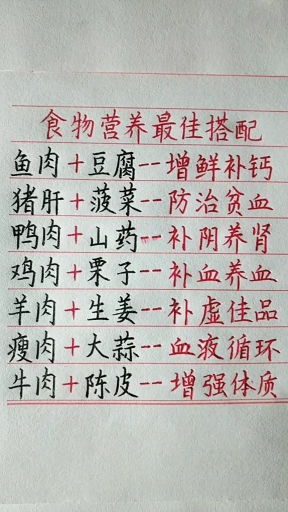 食物营养最佳搭配
鱼肉+豆腐--增鲜补钙
猪肝+菠菜--防治贫血
鸭肉+山药--补阴养肾
鸡肉+栗子--补血养血
羊肉+生姜--补虚佳品
瘦肉+大蒜--血液循环
牛肉+陈皮--增强体质